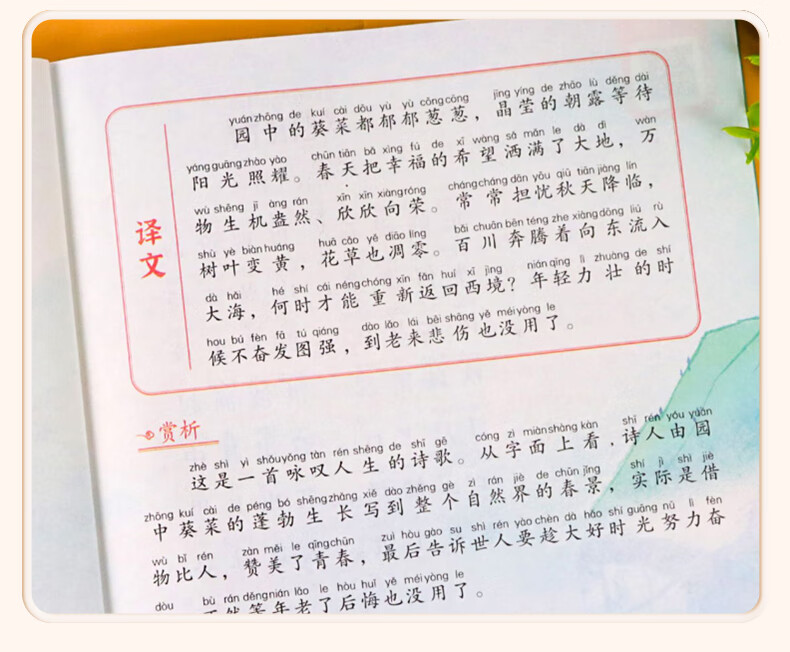 yuán zhōng de kuí cài dōu yù yù cōng cōng jīng yíng de zhāo lù děng dài
园中的葵菜都郁郁葱葱，晶莹的朝露等待
yáng guāng zhào yào chūn tiān bǎ xìng fú de xī wàng sǎ mǎn le dà dì wàn
阳光照耀。春天把幸福的希望洒满了大地，万
wù shēng jī àng rán xīn xīn xiàng róng cháng cháng dān yōu qiū tiān jiàng lín
物生机盎然、欣欣向荣。常常担忧秋天降临，
shù yè biàn huáng huā cǎo yě diāo líng bǎi chuān bēn téng zhe xiàng dōng liú rù
树叶变黄，花草也凋零。百川奔腾着向东流入
dà hǎi hé shí cái néng chóng xīn fǎn huí xī jìng nián qīng lì zhuàng de shí
大海，何时才能重新返回西境？年轻力壮的时
hou bú fèn fā tú qiáng dào lǎo lái bēi shāng yě méi yòng le
候不奋发图强，到老来悲伤也没用了。
译文
赏析
zhè shì yì shǒu yǒng tàn rén shēng de shī gē cóng zì miàn shàng kàn shī rén yóu yuán
这是一首咏叹人生的诗歌。从字面上看，诗人由园
zhōng kuí cài de péng bó shēng zhǎng xiě dào zhěng gè zì rán jiè de chūn jǐng shí jì shì jiè
中葵菜的蓬勃生长写到整个自然界的春景，实际是借
wù bǐ rén zàn měi le qīng chūn zuì hòu gào su shì rén yào chèn dà hǎo shí guāng nǔ lì fèn
物比人，赞美了青春，最后告诉世人要趁大好时光努力奋
dòu bù rán děng nián lǎo le hòu huǐ yě méi yòng le
不然等年老了后悔也没用了。